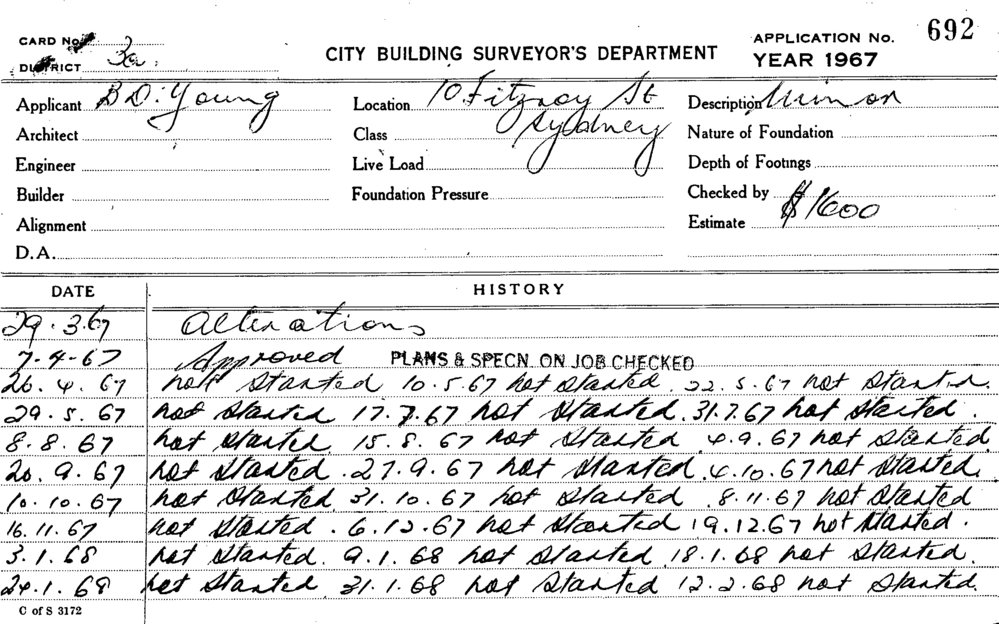 CARD No. 692
DISTRICT 3a. CITY BUILDING SURVEYOR'S DEPARTMENT APPLICATION No. YEAR 1967
Applicant B D. Young Location 10 Fitzroy St Description Minor
Architect Class Sydney Nature of Foundation
Engineer Live Load Depth of Footings
Builder Foundation Pressure Checked by
Alignment Estimate $1600
D.A.
DATE HISTORY
29.3.67 Alterations
7-4-67 Approved PLANS & SPECN. ON JOB CHECKED
26.4.67 not started 10.5.67 not started. 22.5.67 not started.
29.5.67 not started 17.7.67 not started. 31.7.67 not started.
8.8.67 not started. 15.8.67 not started 4.9.67 not started
20.9.67 not started. 27.9.67 not started. 4.10.67 not started.
10.10.67 not started 31.10.67 not started. 8.11.67 not started
16.11.67 not started. 6.12.67 not started 19.12.67 not started.
3.1.68 not started. 9.1.68 not started. 18.1.68 not started.
24.1.68 not started. 31.1.68 not started 12.2.68 not started.
C of S 3172